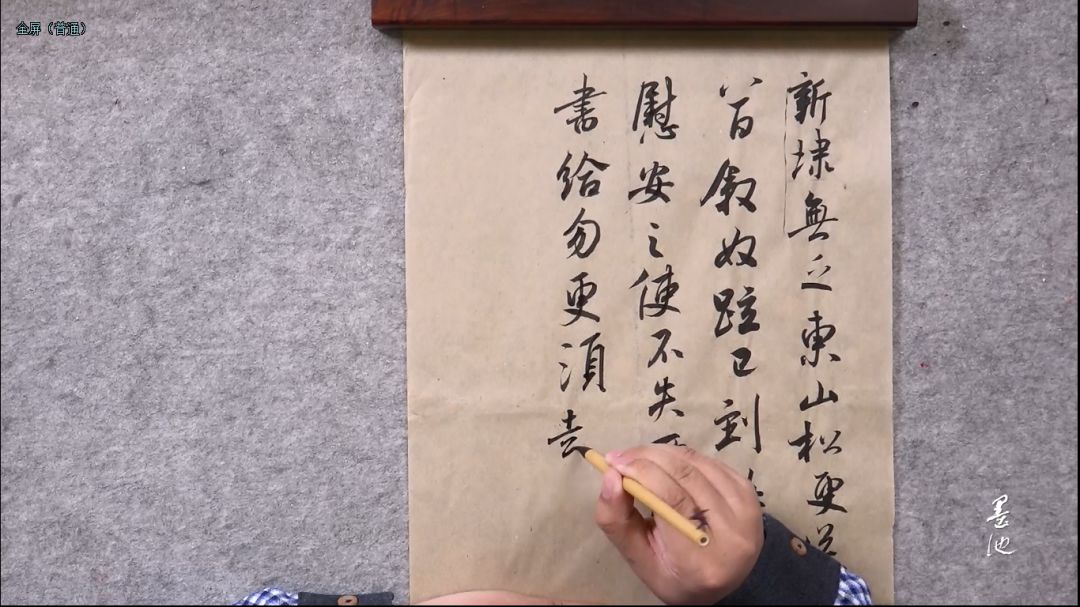 全屏（普通）
新埭無乏東山松更送
八百叙奴
已到
慰安之使不失
書給勿更須
墨池